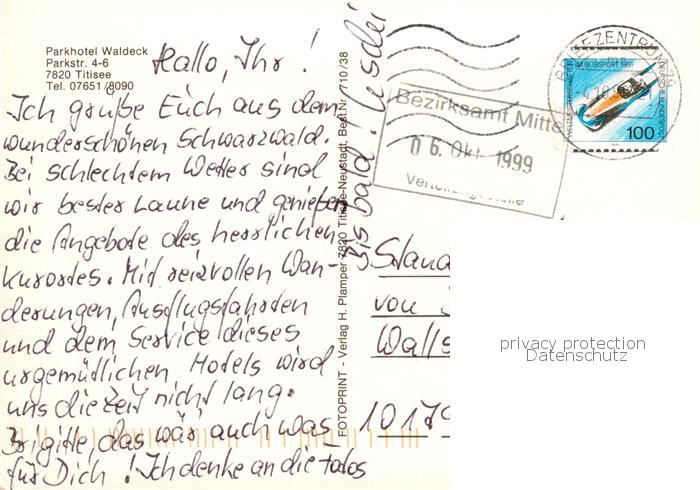 Parkhotel Waldeck
Parkstr. 4-6
7820 Titisee
Tel. 07651/8090
Hallo, Ihr !
Ich grüße Euch aus dem
wunderschönen Schwarzwald.
Bei schlechtem Wetter sind
wir bester Laune und genießen
die Angebote des herrlichen
Kurortes. Mit reizvollen Wan-
derungen, Ausflugsfahrten
und dem Service dieses
urgemütlichen Hotels wird
uns die Zeit nicht lang.
Brigitte, das wär auch was
für Dich ! Ich denke an die Fotos
Bis bald !
FOTOPRINT - Verlag H. Plamper 7820 Titisee-Neustadt, Best.Nr. 110/38
BRIEFZENTRUM
IM BOBSPORT 1991
DEUTSCHE BUNDESPOST
100
Bezirksamt Mitte
06. Okt. 1999
Stand
von
Walls
10179
privacy protection
Datenschutz